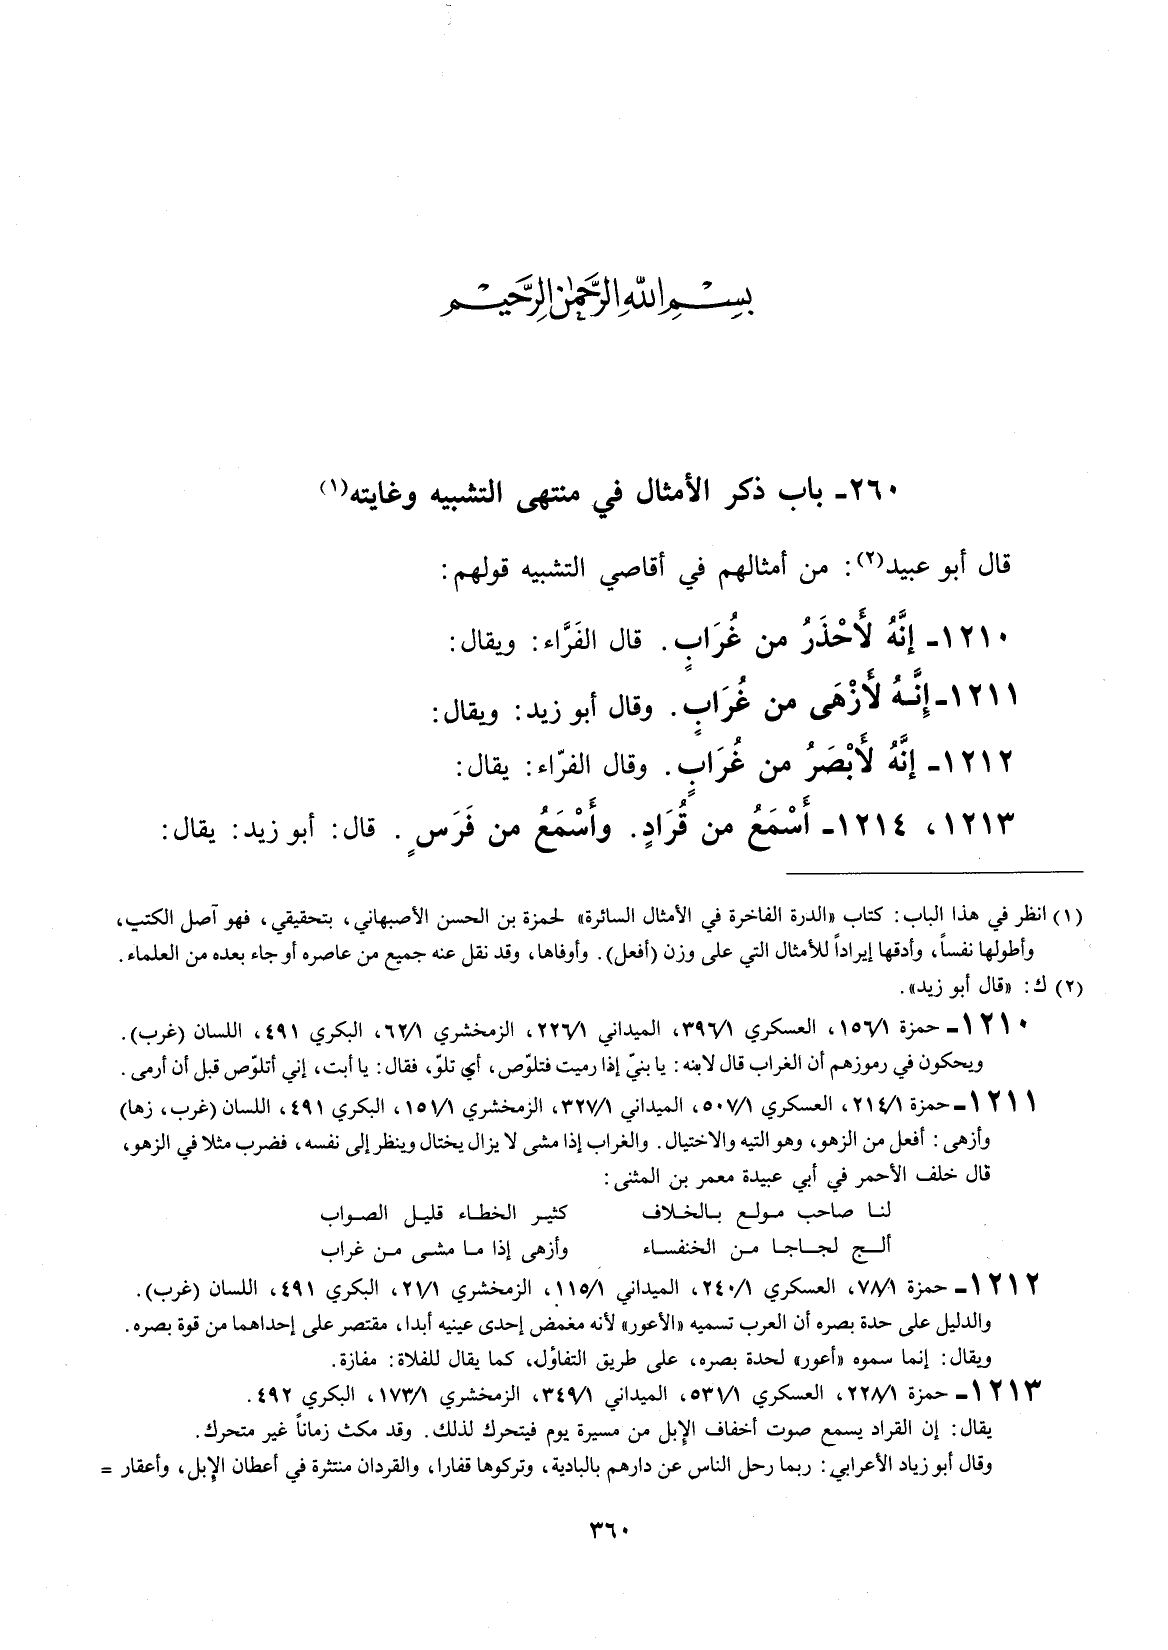 بسم الله الرحمن الرحيم
٢٦٠ـ باب ذكر الأمثال في منتهى التشبيه وغايته(١)
قال أبو عبيد(٢): من أمثالهم في أقاصي التشبيه قولهم:
١٢١٠ـ إنَّهُ لَأَحْذَرُ من غُرَابٍ. قال الفَرَّاء: ويقال:
١٢١١ـ إِنَّهُ لَأَزْهَى من غُرَابٍ. وقال أبو زيد: ويقال:
١٢١٢ـ إنَّهُ لَأَبْصَرُ من غُرَابٍ. وقال الفرّاء: يقال:
١٢١٣، ١٢١٤ـ أَسْمَعُ من قُرَادٍ. وأَسْمَعُ من فَرَسٍ. قال: أبو زيد: يقال:
(١) انظر في هذا الباب: كتاب «الدرة الفاخرة في الأمثال السائرة» لحمزة بن الحسن الأصبهاني، بتحقيقي، فهو آصل الكتب،
وأطولها نفساً، وأدقها إيراداً للأمثال التي على وزن (أفعل). وأوفاها، وقد نقل عنه جميع من عاصره أو جاء بعده من العلماء.
(٢) ك: «قال أبو زيد».
١٢١٠ـ حمزة ١٥٦/١، العسكري ٣٩٦/١، الميداني ٢٢٦/١، الزمخشري ٦٢/١، البكري ٤٩١، اللسان (غرب).
ويحكون في رموزهم أن الغراب قال لابنه: يا بنيّ إذا رميت فتلوّص، أي تلوّ، فقال: يا أبت، إني أتلوّص قبل أن أرمى.
١٢١١ـ حمزة ٢١٤/١، العسكري ٥٠٧/١، الميداني ٣٢٧/١، الزمخشري ١٥١/١، البكري ٤٩١، اللسان (غرب، زها)
وأزهى: أفعل من الزهو، وهو التيه والاختيال. والغراب إذا مشى لا يزال يختال وينظر إلى نفسه، فضرب مثلا في الزهو،
قال خلف الأحمر في أبي عبيدة معمر بن المثنى:
لنا صاحب مولع بالخلاف كثير الخطاء قليل الصواب
ألج لجاجا من الخنفساء وأزهى إذا ما مشى من غراب
١٢١٢ـ حمزة ٧٨/١، العسكري ٢٤٠/١، الميداني ١١٥/١، الزمخشري ٢١/١، البكري ٤٩١، اللسان (غرب).
والدليل على حدة بصره أن العرب تسميه «الأعور» لأنه مغمض إحدى عينيه أبدا، مقتصر على إحداهما من قوة بصره.
ويقال: إنما سموه «أعور» لحدة بصره، على طريق التفاؤل، كما يقال للفلاة: مفازة.
١٢١٣ـ حمزة ٢٢٨/١، العسكري ٥٣١/١، الميداني ٣٤٩/١، الزمخشري ١٧٣/١، البكري ٤٩٢.
يقال: إن القراد يسمع صوت أخفاف الإبل من مسيرة يوم فيتحرك لذلك. وقد مكث زماناً غير متحرك.
وقال أبو زياد الأعرابي: ربما رحل الناس عن دارهم بالبادية، وتركوها قفارا، والقردان منتثرة في أعطان الإبل، وأعقار =
٣٦٠